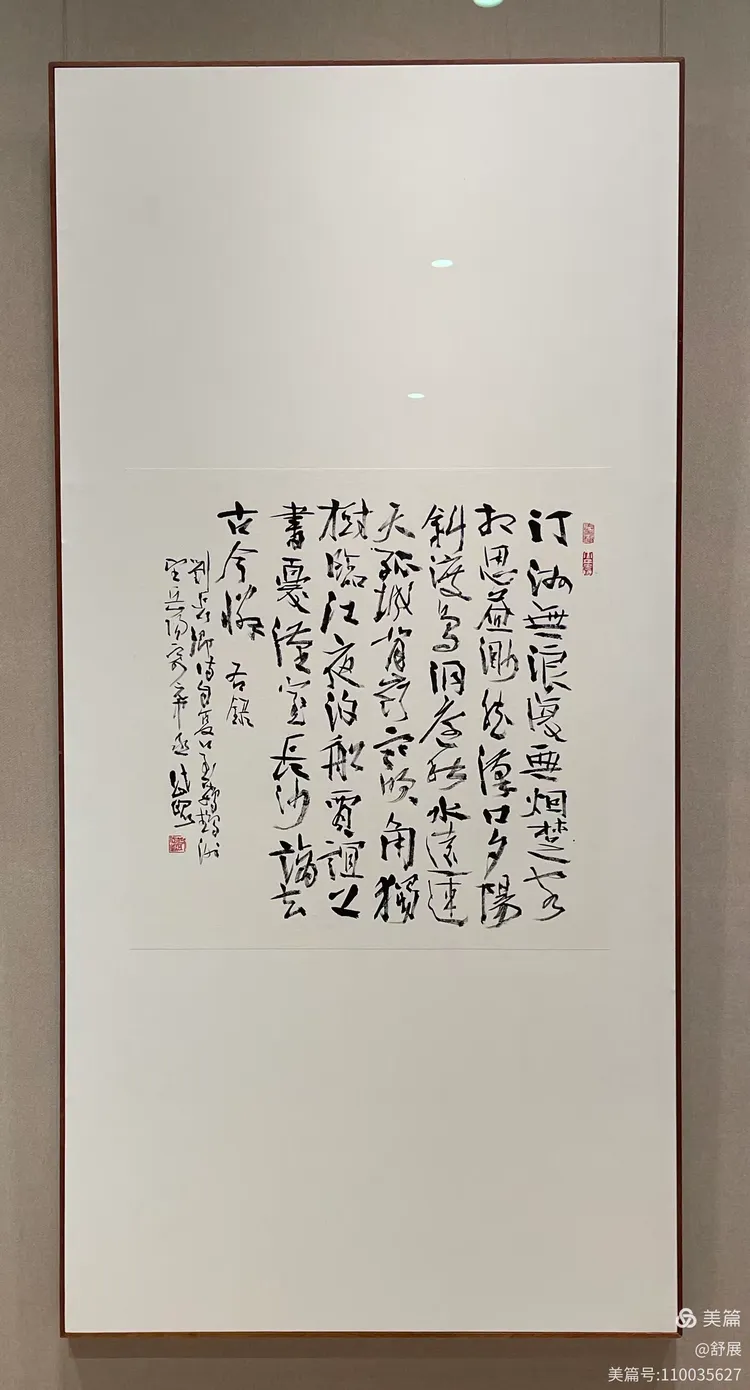 汀洲無浪復無烟楚客
相思益渺然漢口夕陽
斜渡鳥洞庭秋水遠連
天孤城背嶺寒吹角獨
樹臨江夜泊船賈誼上
書憂漢室長沙謫去
古今憐 右錄
劉長卿詩自夏口至鸚鵡洲
望岳陽寄
美篇
@舒展
美篇号:110035627